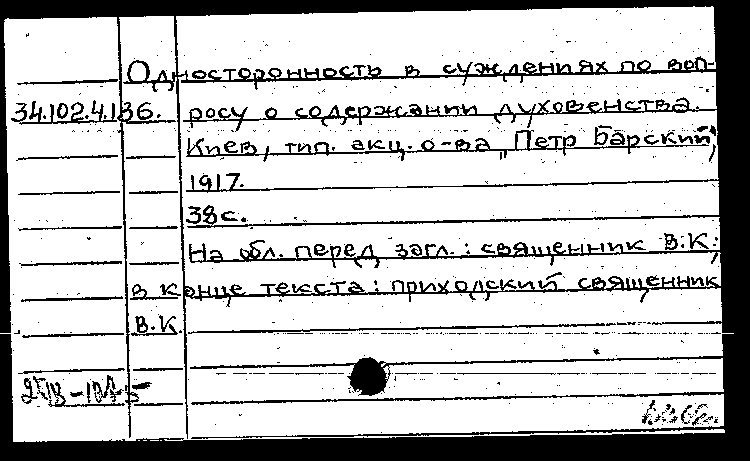 Односторонность в суждениях по воп-
34.102.4.136. росу о содержании духовенства.
Киев, тип. акц. о-ва „Петр Барский",
1917.
38с.
На обл. перед загл.: священник В.К;
в конце текста: приходский священник
В.К